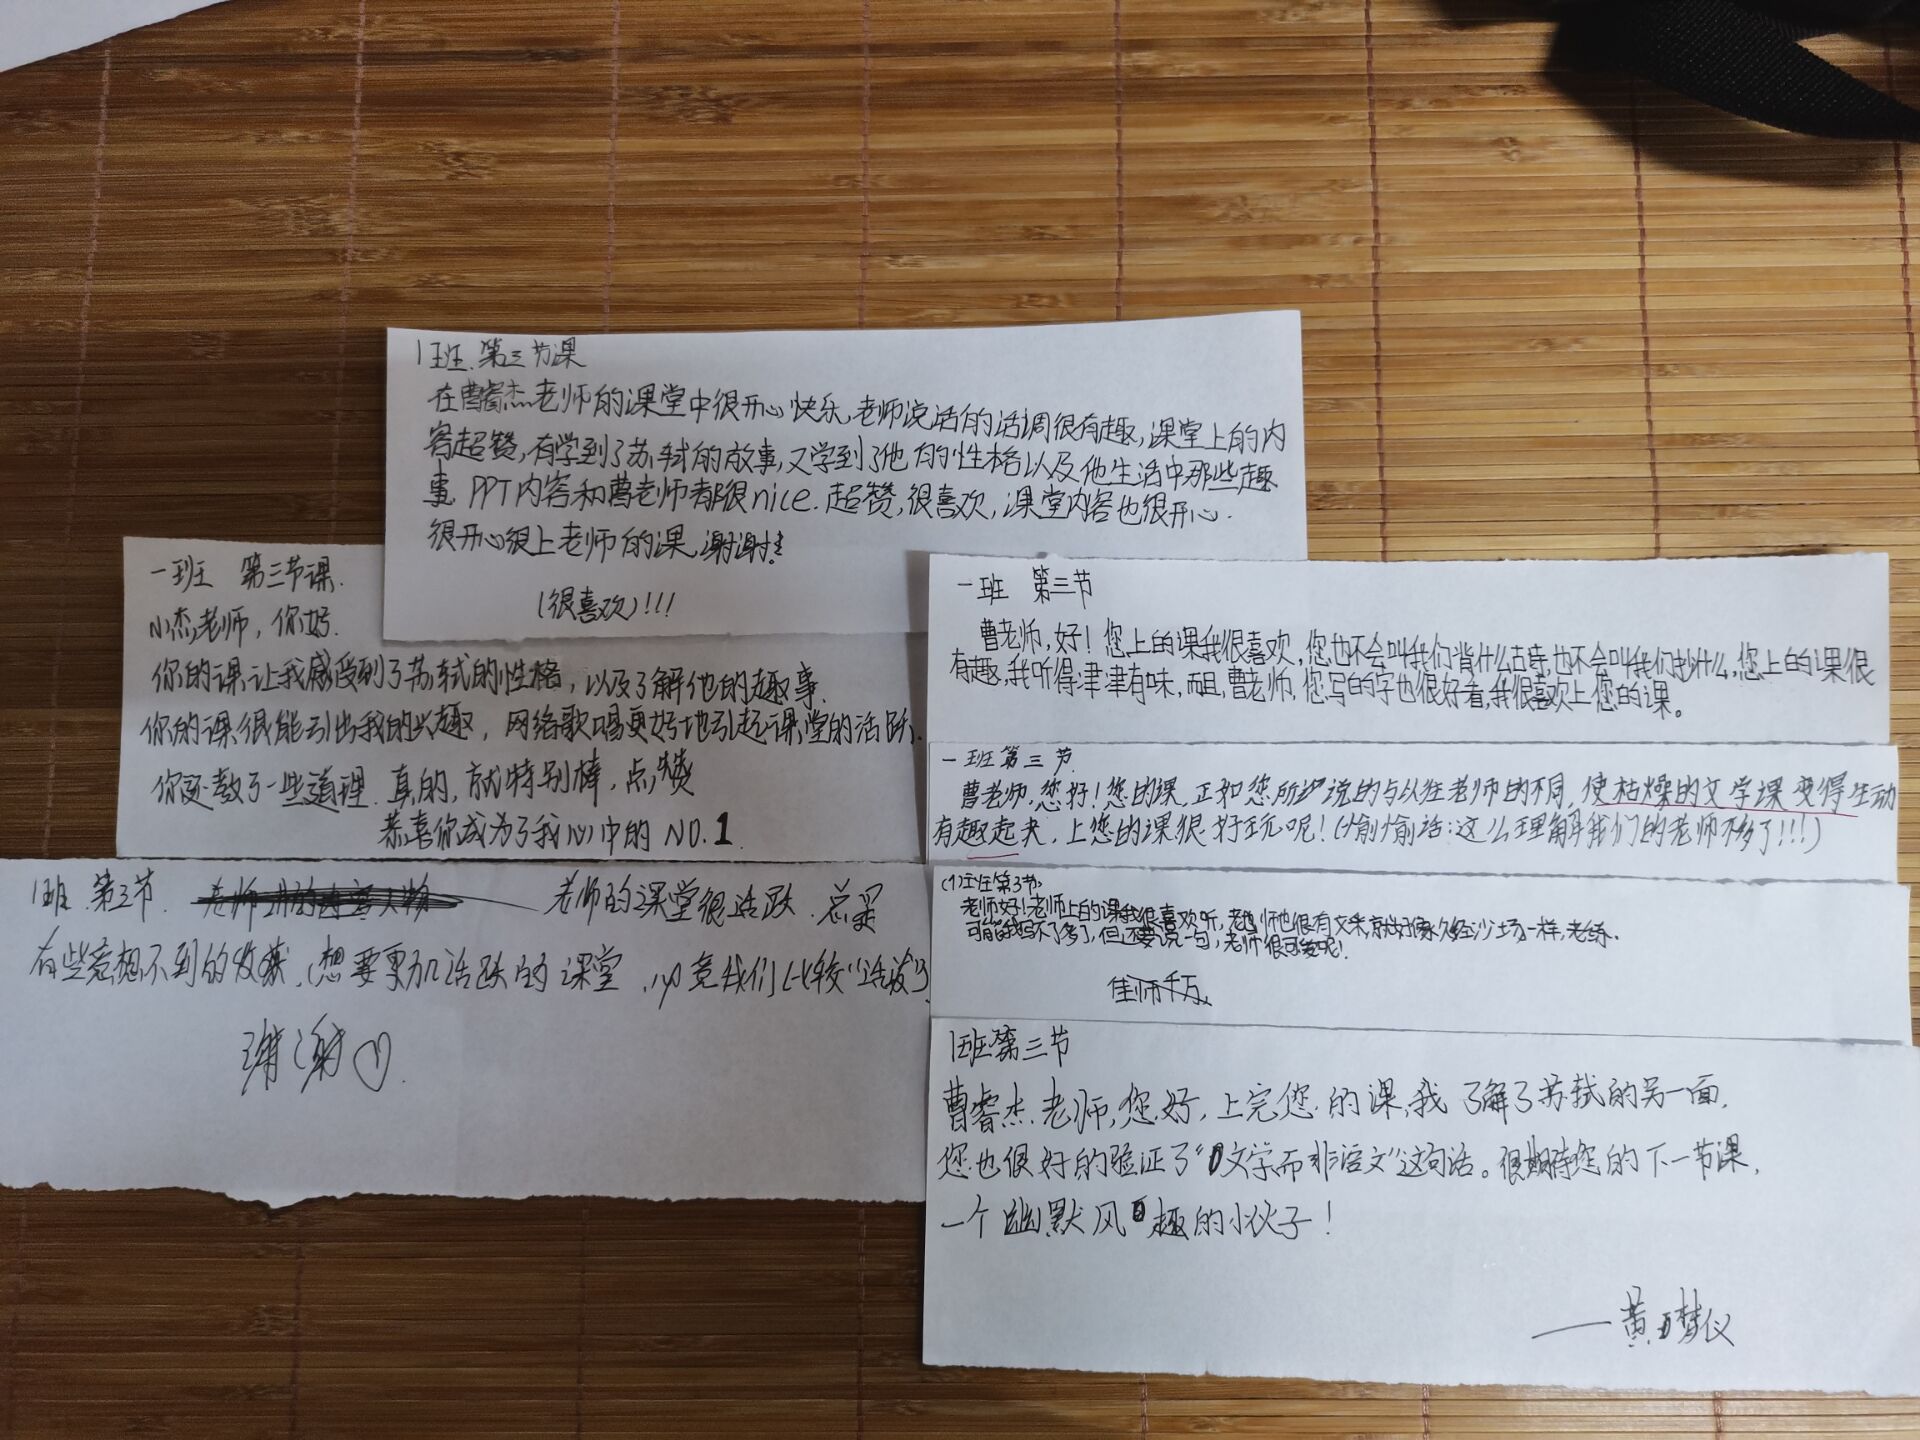 1班.第三节课
在曹睿杰老师的课堂中很开心快乐,老师说话的话调很有趣,课堂上的内
容超赞,有学到了苏轼的故事,又学到了他的性格以及他生活中那些趣
事 PPT内容和曹老师都很nice.超赞,很喜欢,课堂内容也很开心.
很开心很上老师的课,谢谢!
(很喜欢)!!!
一班 第三节课.
小杰老师,你好.
你的课让我感受到了苏轼的性格,以及了解他的趣事.
你的课很能引出我的兴趣,网络歌唱更好地引起课堂的活跃.
你还教了一些道理.真的,就特别棒,点赞
恭喜你成为了我心中的 NO.1.
1班 第三节. 老师的课堂很活跃.总是
有些意想不到的收获,(想要更加活跃的课堂,竟我们比较"活泼")
谢谢
一班 第三节
曹老师,好!您上的课我很喜欢,您也不会叫我们背什么古诗,也不会叫我们抄什么,您上的课很
有趣,我听得津津有味,而且,曹老师,您写的字也很好看,我很喜欢上您的课。
一班第三节
曹老师,您好!您的课,正如您所说的与以往老师的不同,使枯燥的文学课变得生动
有趣起来,上您的课很好玩呢!(偷偷话:这么理解我们的老师不多了!!!)
(1)班第3节
老师好!老师上的课我很喜欢听,老师也很有文采,就好像久经沙场一样,老练.
可能我写不了多了,但还要说一句,老师很可爱呢!
佳师千万
1班第三节
曹睿杰老师,您好,上完您的课,我了解了苏轼的另一面,
您也很好的验证了"文学而非语文"这句话。很期待您的下一节课,
一个幽默风趣的小伙子!
——黄梦仪